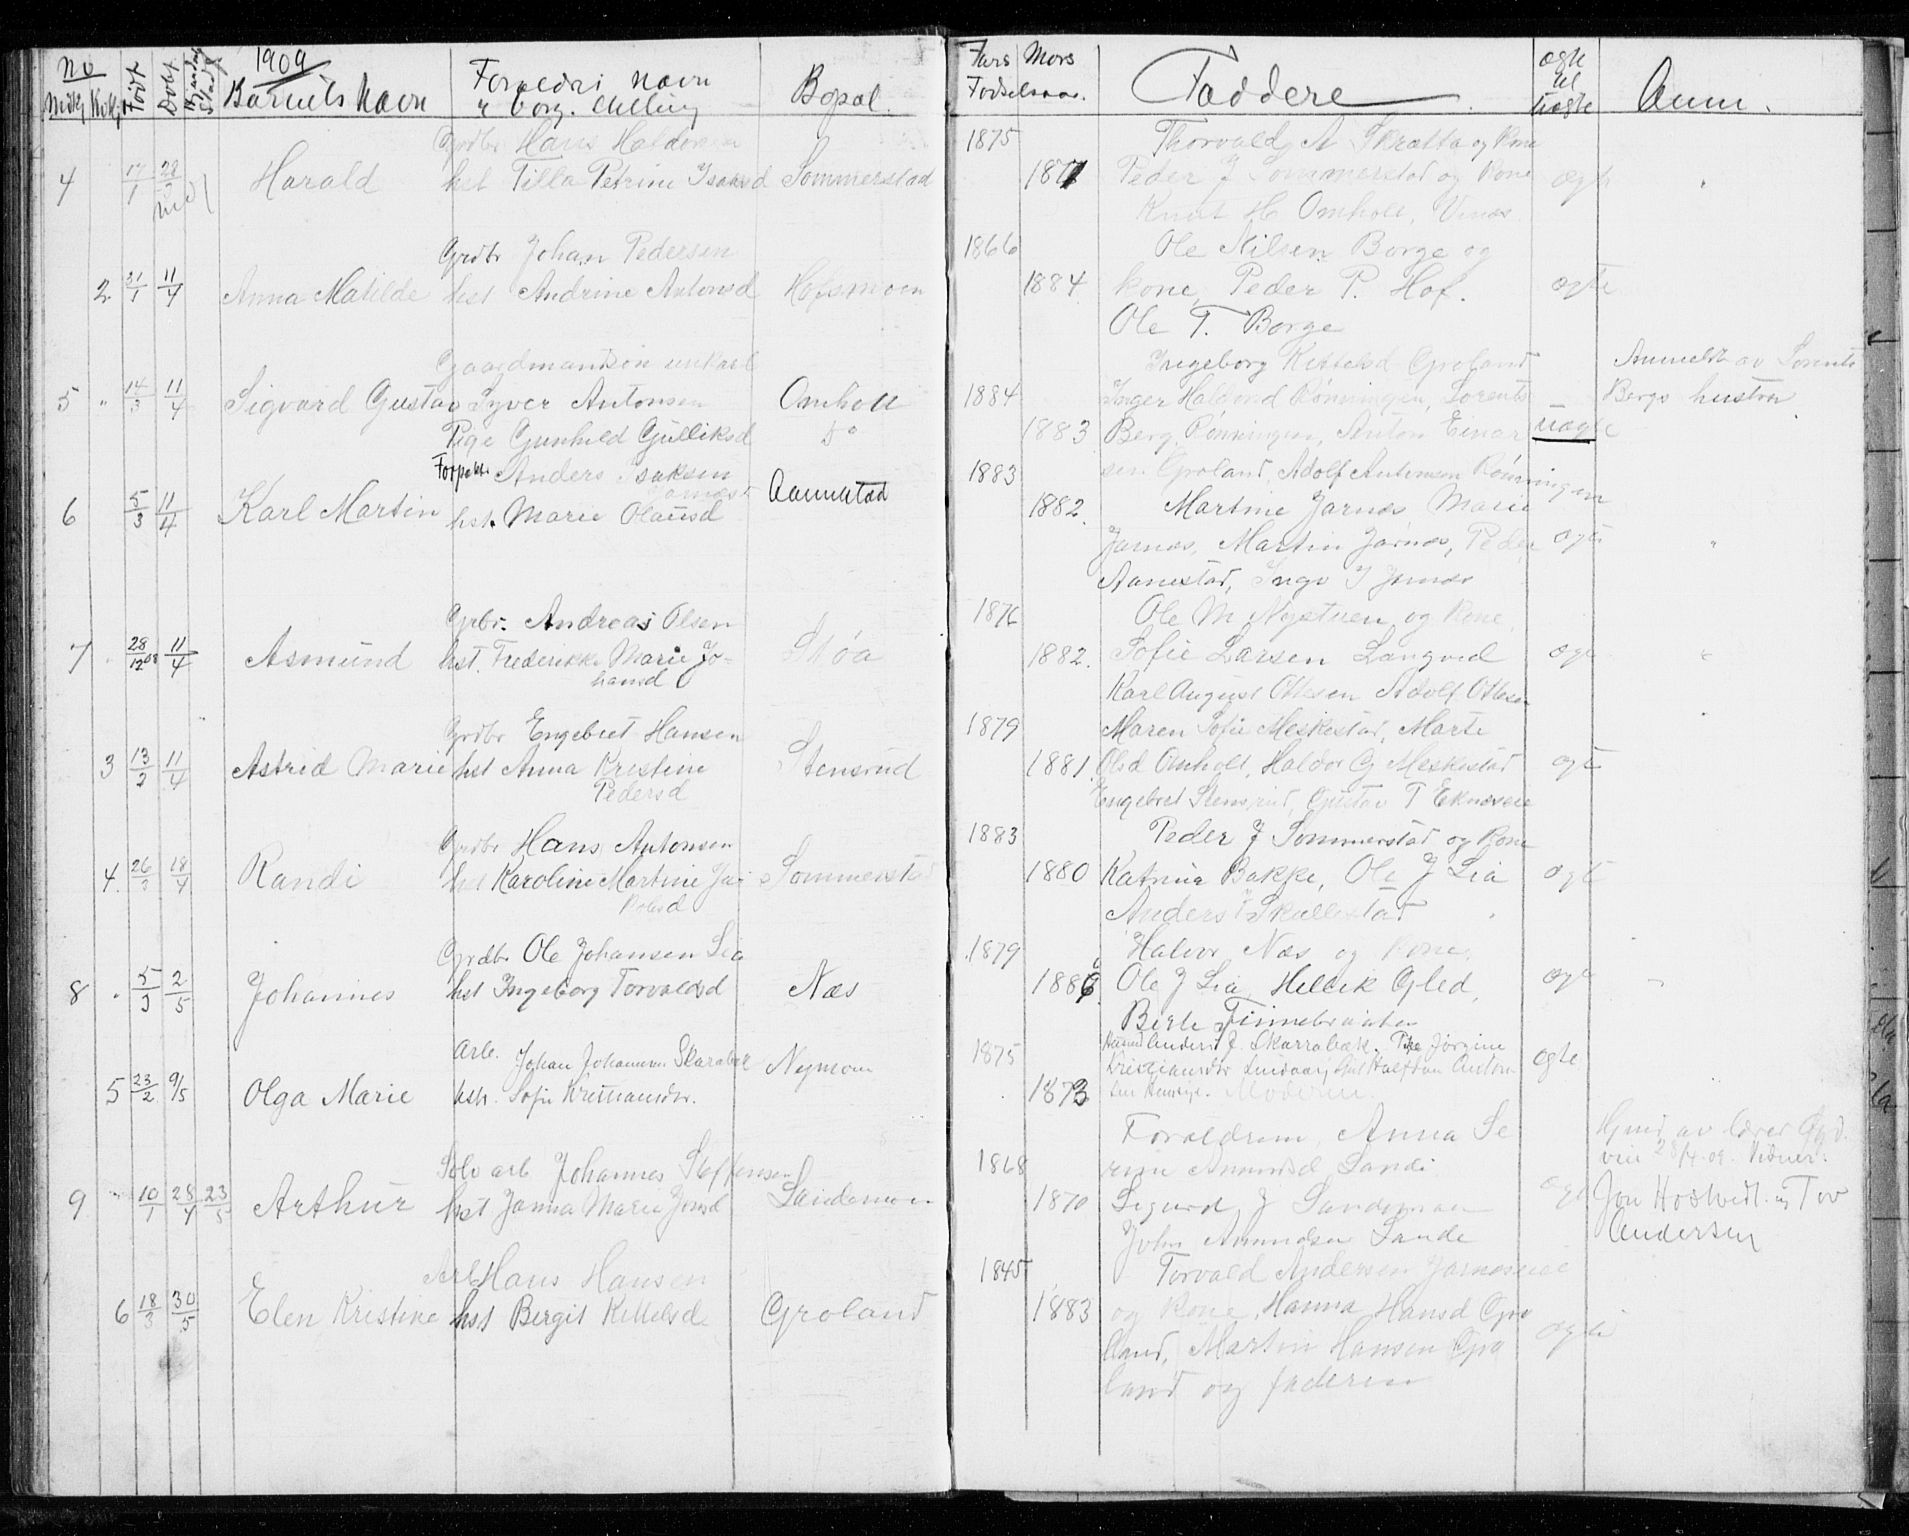 No 1909
Mdkj Kvkj Født Døbt Barnets Navn Forældres navn Bopæl.
u borg. stilling
Fars Mors Faddere ægte Anm.
Fødselsaar. til uægte
Grdbr Hans Haldorsen
4 17/1 28/3 Harald hst Tilla Petrine Isaksd Sommerstad
1875 Thorvald A Skrætta og Kone
1877 Peder J Sommerstad og Kone ægte
Knut H Omholt, Vinæs
Grdbr Johan Pedersen
2 21/1 11/4 Anna Matilde hst Andrine Antonsd Hofsmoen
1866 Ole Nilsen Borge og
1884 kone, Peder P. Hof. ægte
Ole T. Borge
Gaardmandsøn unkarl
5 " 14/3 11/4 Sigvard Gustav Syver Antonsen Omholt
Pige Gunhild Gulliksd do
Ingeborg Kittelsd Groland Anmeldt av Lorents
1884 Inger Haldorsd Rønningen, Lorents Bergs hustru
1883 Berg, Rønningen, Anton Einar uægte
Forpakt. Anders Isaksen
Jarnæs
6 5/3 11/4 Karl Martin hst. Marie Olausd Aannestad
1883 sen Groland, Adolf Antonsen Rønningen
1882. Martine Jarnæs Marie
Jarnæs, Martin Jarnæs, Peder ægte "
Aannestad, Inga I Jarnæs
Grbr. Andreas Olsen
7 " 28/12 08 11/4 Asmund hst. Frederikke Marie Jo-
hansd Støa
1876 Ole M Nystuen og Kone,
1882. Sofie Larsen Langved ægte "
Karl August Ottesen Adolf Ottesen
Grdbr Engebret Hansen
3 13/2 11/4 Astrid Marie hst Anna Kristine Stensrud
Pedersd
1879 Maren Sofie Meskestad, Marte
1881. Olsd Omholt, Haldor G Meskestad ægte
Engebret Stensrud, Gustav T Eknæseie
Grdbr Hans Antonsen
4. 26/2 18/4 Randi hst Karoline Martine Ja- Sommerstad
kobsd
1883 Peder J Sommerstad og Kone
1880 Katrina Bakke, Ole J Lia ægte
Anders Skallestad
Grdbr Ole Johansen Lia
8 " 5/3 2/5 Johannes hst Ingeborg Torvaldsd Næs
1879 Halvor Næs og Kone,
1886 Ole J Lia, Hellik Gled, ægte "
Berte Finnebraaten
Arb. Johan Johannesen Skarabæk Nymoen
5 23/2 9/5 Olga Marie hst. Sofie Kristiansdtr.
1875 Anders J. Skarrabæk. Pike Jørgine ægte
Kristiansdtr Lindaas, Halfdan Anton
1873 sen Moderen.
Selv arb Johannes Steffensen
9 " 10/1 28/4 23/5 Arthur hst Janna Marie Jonsd Sandemoen
Forældrene, Anna Se
1868 rine Amundsd Sandi
1870 Sigurd J Sandemoen ægte
John Amundsen Sande
Hjmd. av lærer Gud
vin 28/4.09. Vidner:
Jon Hostvedt og Tov
Andersen
Arb Hans Hansen
6 18/3 30/5 Elen Kristine hst Bergit Kittelsd Groland
1845 Torvald Andersen Jarnæseie
1883 og Kone, Hanna Hansd Gro
land, Martin Hansen Gro ægte
land og faderen